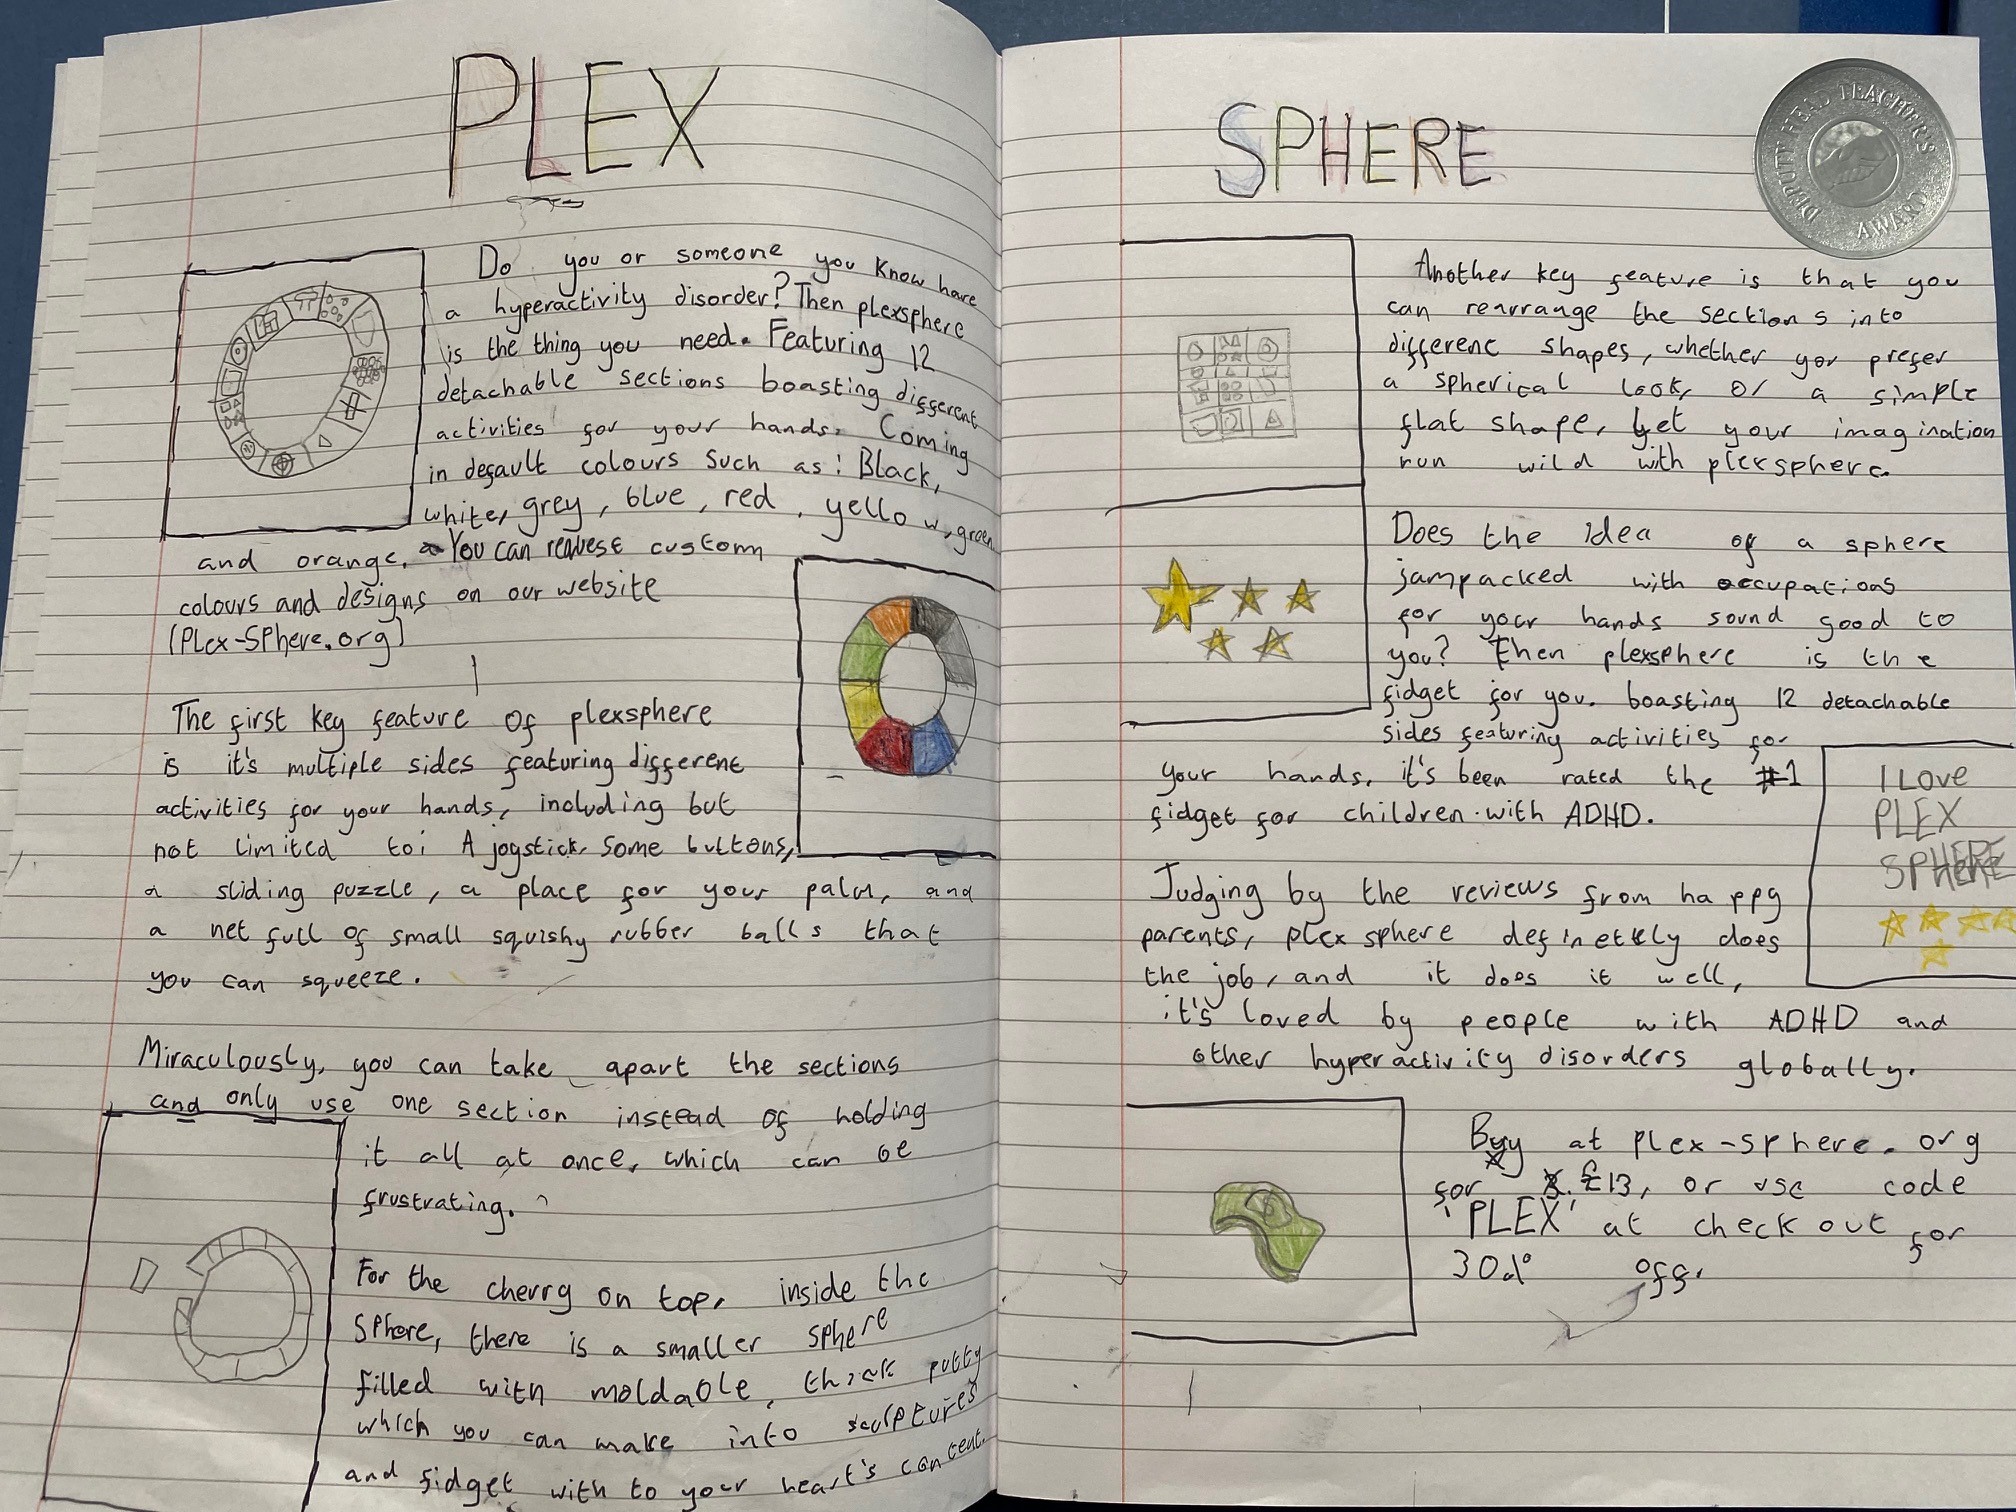 PLEX
Do you or someone you know have
a hyperactivity disorder? Then plexsphere
is the thing you need. Featuring 12
detachable sections boasting different
activities for your hands. Coming
in default colours such as: Black,
white, grey, blue, red, yellow, green
and orange. You can request custom
colours and designs on our website
(Plex-SPhere.org)
The first key feature of plexsphere
is it's multiple sides featuring different
activities for your hands, including but
not limited to: A joystick, some buttons,
a sliding puzzle, a place for your palm, and
a net full of small squishy rubber balls that
you can squeeze.
Miraculously, you can take apart the sections
and only use one section instead of holding
it all at once, which can be
frustrating.
For the cherry on top, inside the
sphere, there is a smaller sphere
filled with moldable, thick putty
which you can make into sculptures
and fidget with to your heart's content.
SPHERE
DEPUTY HEAD TEACHER'S
AWARD
Another key feature is that you
can rearrange the sections into
different shapes, whether you prefer
a spherical look, or a simple
flat shape, let your imagination
run wild with plexsphere.
Does the idea of a sphere
jampacked with occupations
for your hands sound good to
you? Then plexsphere is the
fidget for you. boasting 12 detachable
sides featuring activities for
your hands, it's been rated the #1
fidget for children with ADHD.
I Love
PLEX
SPHERE
Judging by the reviews from happy
parents, plex sphere definetely does
the job, and it does it well,
it's loved by people with ADHD and
other hyperactivity disorders globally.
Buy at plex-sphere.org
for £13, or use code
'PLEX' at checkout for
30% off.